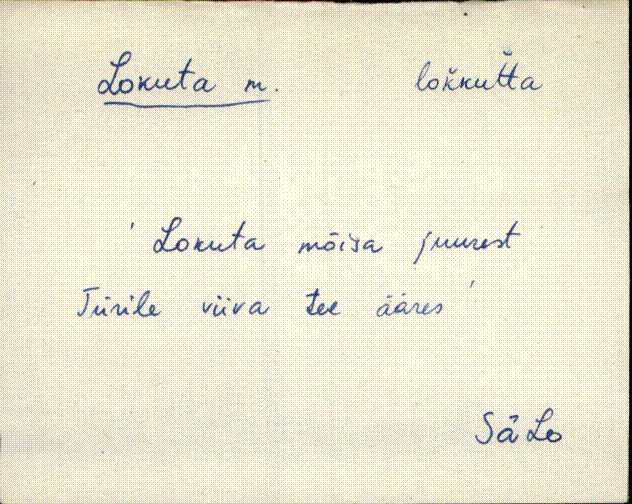 Lokuta m. lok̆kut̆ta
' Lokuta mõisa juurest
Türile viiva tee ääres '
Sä Lo